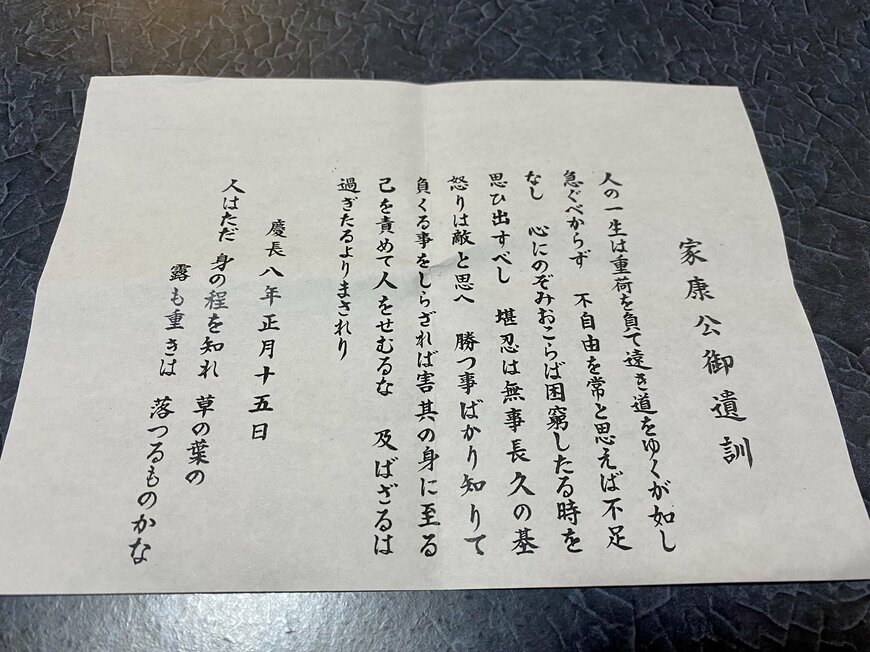 家康公御遺訓
人の一生は重荷を負て遠き道をゆくが如し
急ぐべからず 不自由を常と思えば不足
なし 心にのぞみおこらば困窮したる時を
思ひ出すべし 堪忍は無事長久の基
怒りは敵と思へ 勝つ事ばかり知りて
負くる事をしらざれば害其の身に至る
己を責めて人をせむるな 及ばざるは
過ぎたるよりまされり
慶長八年正月十五日
人はただ 身の程を知れ 草の葉の
露も重きは 落つるものかな